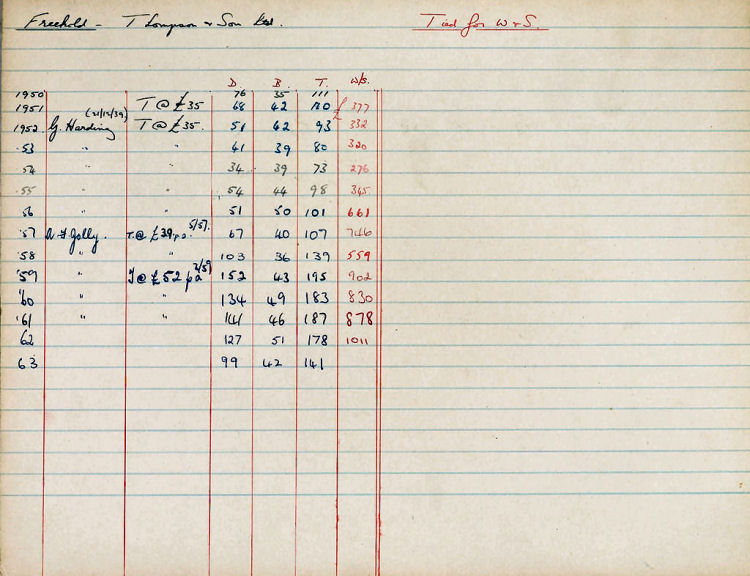 Freehold - Thompson & Son Ltd. Tied for W & S.
D. B. T. W/S.
1950 76 35 111
1951 T @ £35 68 42 110 £ 377
1952 G. Harding (21/12/39) T @ £35. 51 42 93 £ 332
53 " " 41 39 80 320
54 " " 34 39 73 276
55 " " 54 44 98 345
56 " " 51 50 101 661
57 T. @ £39 p.a. 5/57. 67 40 107 746
58 " " 103 36 139 559
'59 " T @ £52 pa 2/59 152 43 195 902
'60 " " 134 49 183 830
'61 " " 141 46 187 878
62 127 51 178 1011
63 99 42 141